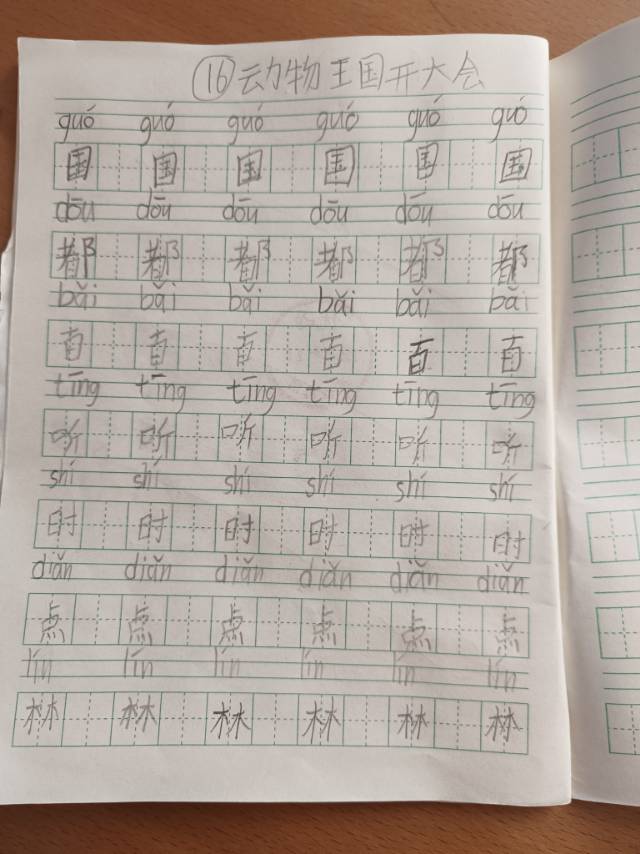 ⑯动物王国开大会
guó guó guó guó guó guó
国 国 国 国 国 国
dōu dōu dōu dōu dōu dōu
都 都 都 都 都 都
bǎi bǎi bǎi bǎi bǎi bǎi
百 百 百 百 百 百
tīng tīng tīng tīng tīng tīng
听 听 听 听 听 听
shí shí shí shí shí shí
时 时 时 时 时 时
diǎn diǎn diǎn diǎn diǎn diǎn
点 点 点 点 点 点
lín lín lín lín lín lín
林 林 林 林 林 林